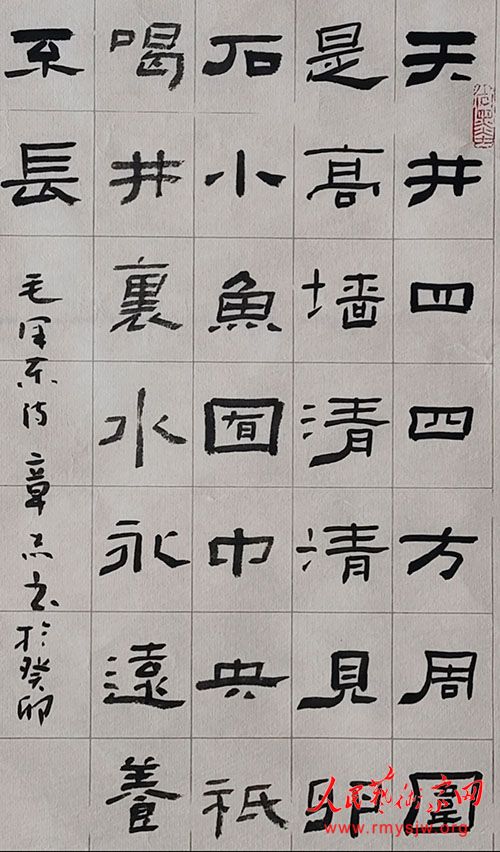 天井四四方周圍
是高墙清清見卵
石小魚囿中央祇
喝井裏水永遠養
不長
毛泽东诗 章 书於癸卯
人民藝術家网
www.rmysjw.org